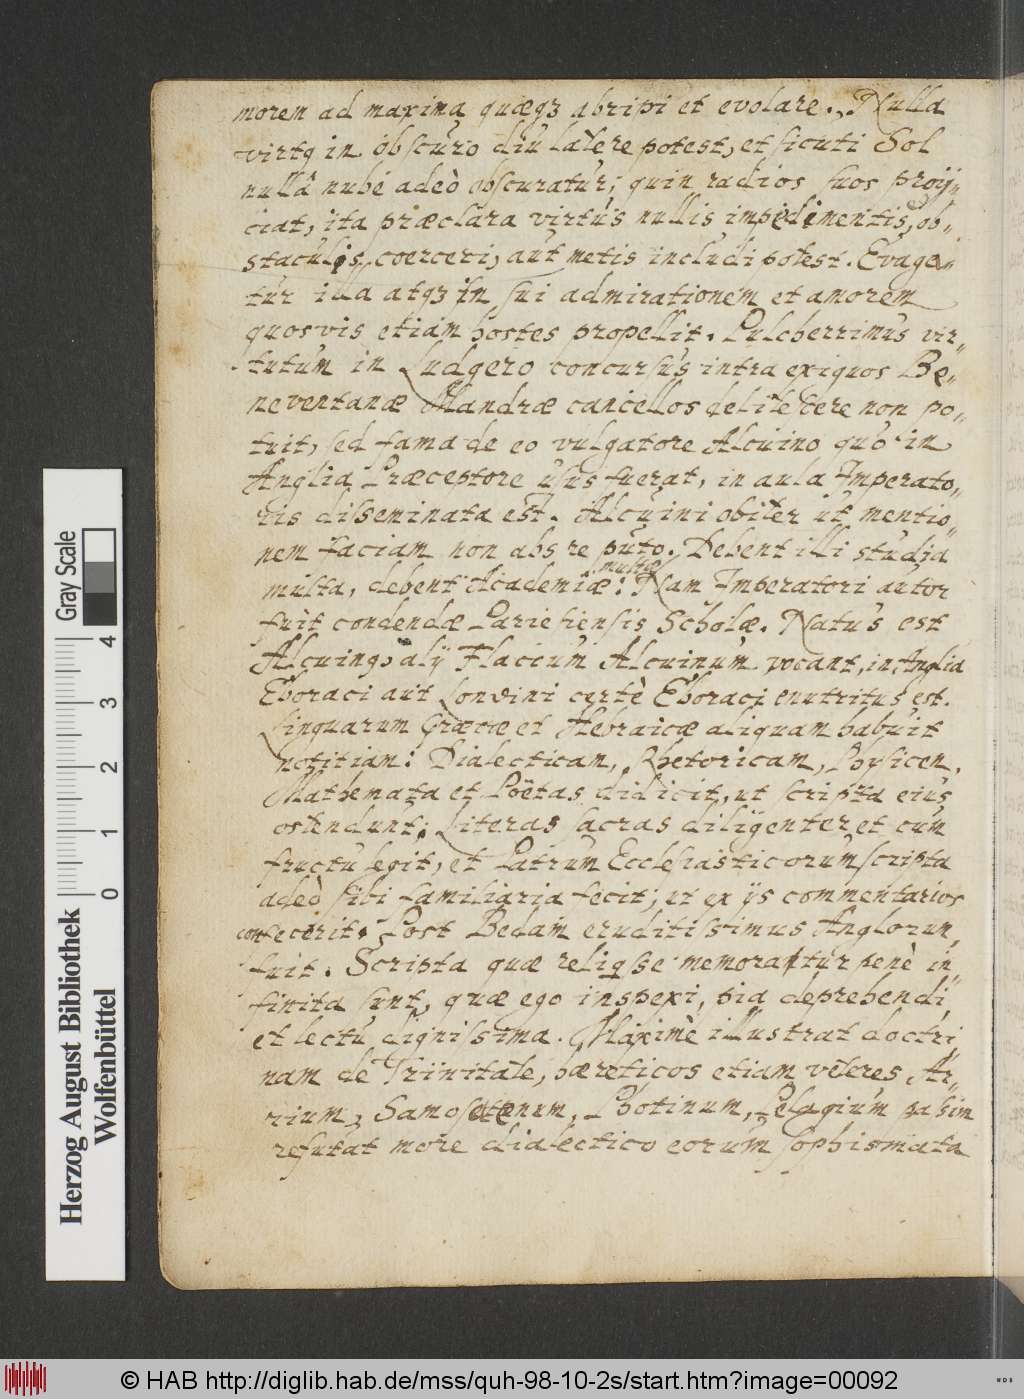 morem ad maxima quæqȝ abripi et evolare. Nulla
virtꝯ in obscuro diu latere potest, et sicuti Sol
nullâ nube adeò obscuratur, quin radios suos proij-
ciat, ita præclara virtus nullis impedimentis, ob-
staculis coerceri, aut metis includi potest. Evaga-
tur illa atqȝ in sui admirationem et amorem
quosvis etiam hostes propellit. Pulcherrimus vir-
tutum in Ludgero concursus intra exiguos Be-
neventanæ Mandræ cancellos delitescere non po-
tuit, sed fama de eo vulgatore Alcuino quo in
Anglia Præceptore usus fuerat, in aula Imperato-
ris disseminata est. Alcuini obiter ut mentio-
nem faciam non abs re puto. Debent illi studia
multa, debent Academiæ multæ: Nam Imperatori autor
fuit condendæ Parisiensis Scholæ. Natus est
Alcuinꝯ, alij Flaccum Alcuinum vocant, in Anglia
Eboraci aut Londini certè Eboraci enutritus est.
Linguarum Græcæ et Hebraicæ aliquam habuit
notitiam: Dialecticam, Rhetoricam, Physicen,
Mathemata et Poëtas didicit, ut scripta eius
ostendunt; Literas sacras diligenter et cum
fructu legit, et Patrum Ecclesiasticorum scripta
adeò sibi familiaria fecit; et ex ijs commentarios
confecerit. Post Bedam eruditissimus Anglorum
fuit. Scripta quæ reliqisse memoratur penè in-
finita sunt, quæ ego inspexi, pia deprehendi,
et lectu dignissima. Maximè illustrat doctri-
nam de Trinitate, hæreticos etiam veteres Ar-
rium, Samosatenum, Photinum, Pelagium passim
refutat more dialectico eorum sophismata
Herzog August Bibliothek
Wolfenbüttel
0 1 2 3 4
Gray Scale
© HAB http://diglib.hab.de/mss/quh-98-10-2s/start.htm?image=00092
WDB